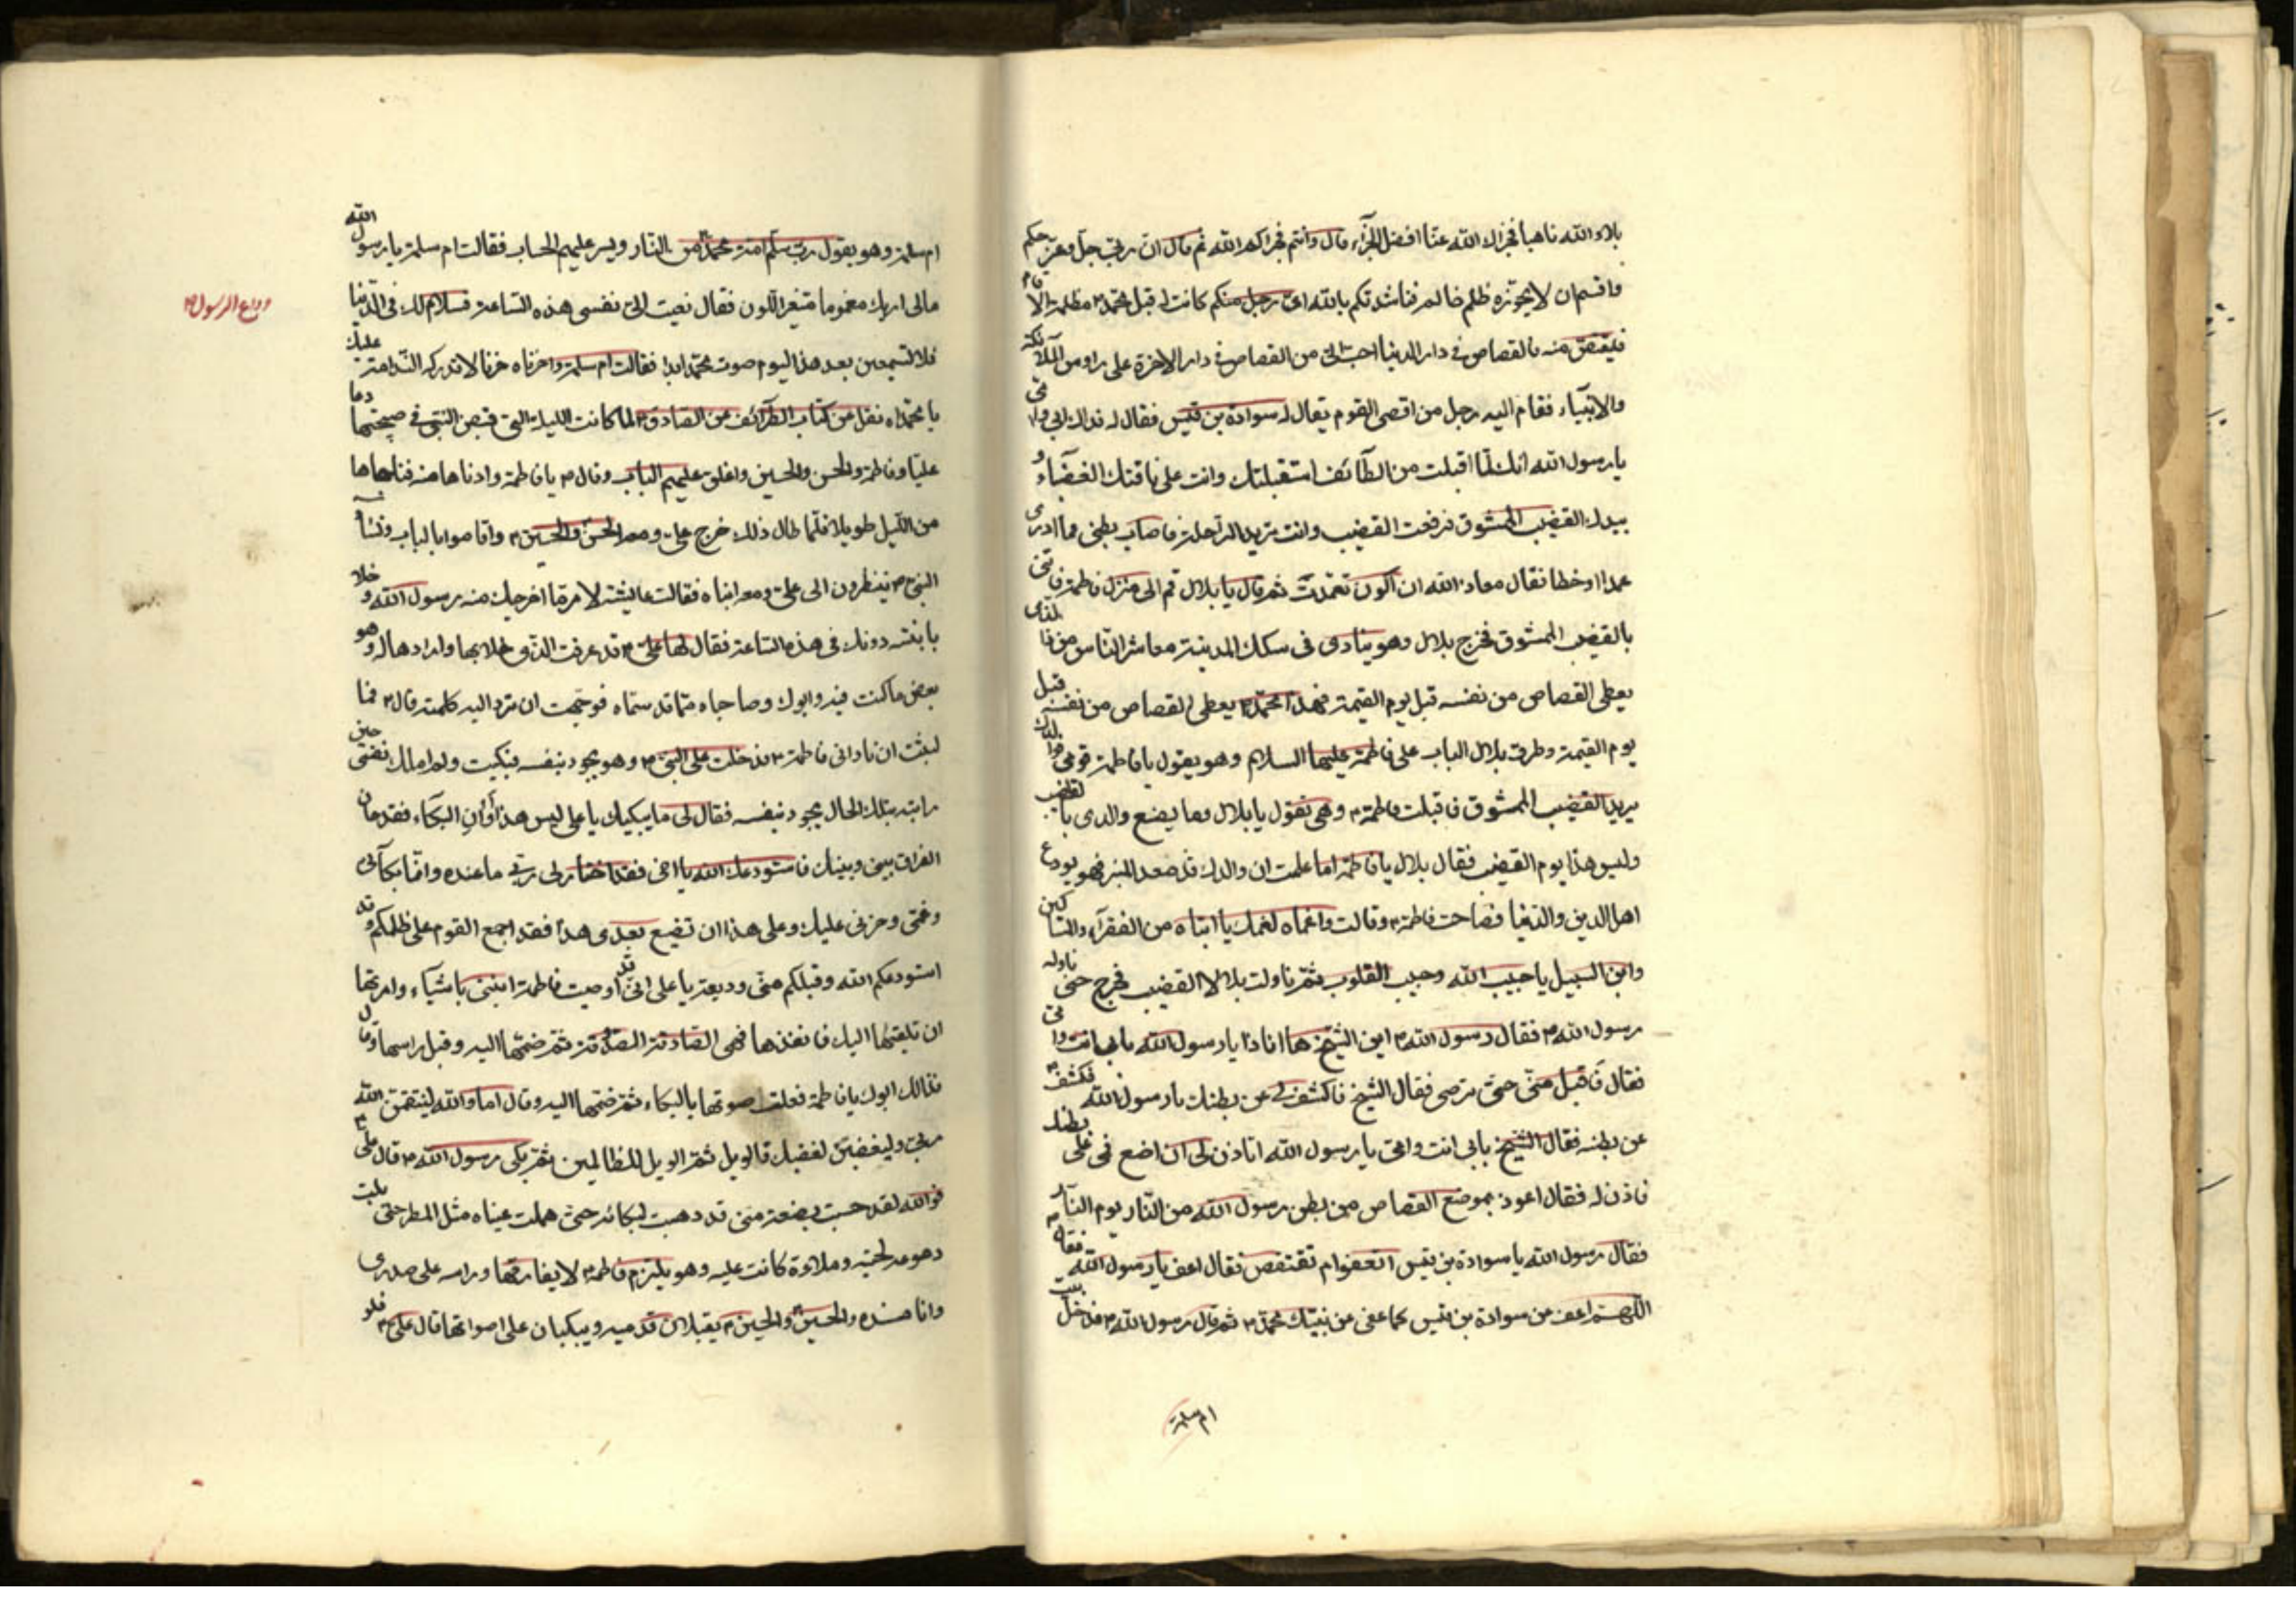 بلاء الله ناهيا فجزاك الله عنا افضل الجزاء قال وانتم فجزاكم الله ثم قال ان ربي جل وعز حكم
واقسم ان لا يجوزه ظلم ظالم فناشدتكم بالله اى رجل منكم كانت له قبل محمد مظلمة الا قام
فليقتص منه فالقصاص في دار الدنيا احب الى من القصاص في دار الاخرة على رؤس الملائكة
والانبياء فقام اليه رجل من اقصى القوم يقال له سوادة بن قيس فقال له فداك ابي وامى
يا رسول الله انك لما اقبلت من الطائف استقبلتك وانت على ناقتك الغضباء و
بيدك القضيب الممشوق فرفعت القضيب وانت تريد الراحلة فاصاب بطنى فما ادرى
عمدا او خطا فقال معاذ الله ان اكون تعمدت ثم قال يا بلال قم الى منزل فاطمة فاتنى
بالقضيب الممشوق فخرج بلال وهو ينادى فى سكك المدينة معاشر الناس من ذا الذى
يعطى القصاص من نفسه قبل يوم القيمة فهذا محمد يعطى القصاص من نفسه قبل
يوم القيمة وطرق بلال الباب على فاطمة عليها السلام وهو يقول يا فاطمة قومى فوالدك
يريد القضيب الممشوق فاقبلت فاطمة وهى تقول يا بلال وما يصنع والدى بالقضيب
وليس هذا يوم القضيب فقال بلال يا فاطمة اما علمت ان والدك قد صعد المنبر فهو يودع
اهل الدين والدنيا فصاحت فاطمة وقالت واغماه لغمك يا ابتاه من الفقراء والمساكين
وابن السبيل يا حبيب الله وحبيب القلوب ثم ناولت بلالا القضيب فخرج حتى ناوله
رسول الله فقال رسول الله اين الشيخ ها انا ذا يا رسول الله بابى انت وامى
فقال فاقبل منى حتى ترضى فقال الشيخ فاكشف لى عن بطنك يا رسول الله فكشف
عن بطنه فقال الشيخ بابى انت وامى يا رسول الله اتاذن لى ان اضع فمى على بطنك
فاذن له فقال اعوذ بموضع القصاص من بطن رسول الله من النار يوم النار
فقال رسول الله يا سوادة بن قيس اتعفو ام تقتص فقال اعف يا رسول الله فقال
اللهم اعف عن سوادة بن قيس كما عفى عن نبيك محمد ثم قال رسول الله فدخل بيت
ام سلمة
ام سلمة وهو يقول رب سلم امة محمد من النار ويسر عليهم الحساب فقالت ام سلمة يا رسول الله
مالى اريك مغموما متغير اللون فقال نعيت الى نفسى هذه الساعة فسلام لك فى الدنيا
وداع الرسول
فلا تسمعين بعد هذا اليوم صوت محمد ابدا فقالت ام سلمة واحزناه حزنا لا تدركه الندامة عليك
يا محمداه نقل عن كتاب الطرائف عن الصادق لما كانت الليلة التى قبض النبى فى صبيحتها دعا
عليا وفاطمة والحسن والحسين واغلق عليهم الباب وقال يا فاطمة وادناها منه فناجاها
من الليل طويلا فلما طال ذلك خرج على ومعه الحسن والحسين واقاموا بالباب ونساء
النبى ينظرون الى على ومعه ابناه فقالت عايشة لامر ما اخرجك منه رسول الله وخلا
بابنته دونك فى هذه الساعة فقال لها على قد عرفت الذى خلا بها وارادها له وهو
بعض ما كنت فيه وابوك وصاحباه مما قد سماه فوجمت ان ترد اليه كلمة قال فما
لبثت ان نادانى فاطمة فدخلت على النبى وهو يجود بنفسه فبكيت ولم املك نفسى حين
رايته بتلك الحال يجود بنفسه فقال لى ما يبكيك يا على ليس هذا اوان البكاء فقد حان
الفراق بينى وبينك فاستودعك الله يا اخى فقد اختار لى ربى ما عنده وانما بكائى
وغمى وحزنى عليك وعلى هذه ان تضيع بعدى هذا فقد اجمع القوم على ظلمكم وقد
استودعكم الله وقبلكم منى وديعة يا على انى قد اوصيت فاطمة ابنتى باشياء وامرتها
ان تلقيها اليك فانفذها فهى الصادقة الصدوقة ثم ضمها اليه وقبل راسها وقال
فداك ابوك يا فاطمة فعلت صوتها بالبكاء ثم ضمها اليه وقال اما والله لينتقمن الله
ربى وليغضبن لغضبك فالويل ثم الويل للظالمين ثم بكى رسول الله قال على
فوالله لقد حسبت بضعة منى قد ذهبت لبكائه حتى هملت عيناه مثل المطر حتى بلت
دموعه لحيته وملاءة كانت عليه وهو يلتزم فاطمة لا يفارقها وراسه على صدرى
وانا مسنده والحسن والحسين يقبلان قدميه ويبكيان على اصواتهما قال على فلو